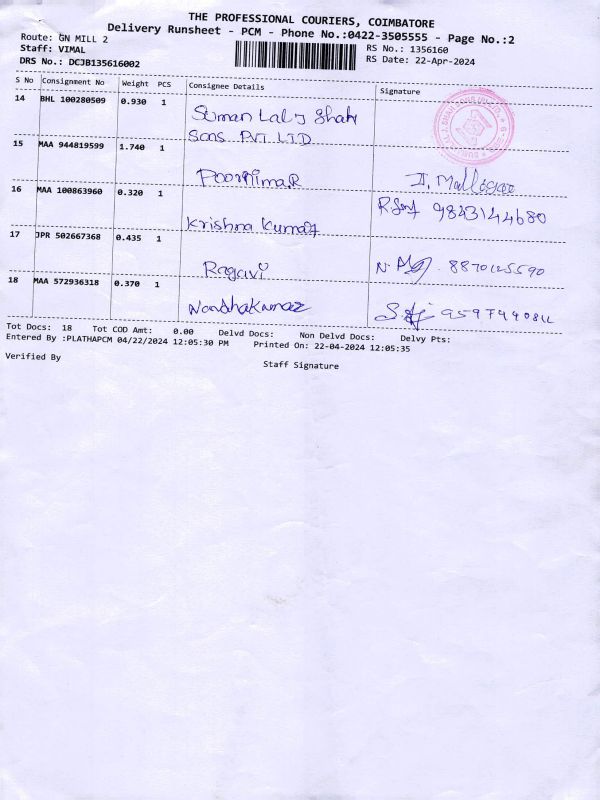 THE PROFESSIONAL COURIERS, COIMBATORE
Delivery Runsheet - PCM - Phone No.:0422-3505555 - Page No.:2
Route: GN MILL 2
RS No.: 1356160
Staff: VIMAL
RS Date: 22-Apr-2024
DRS No.: DCJB135616002
S No Consignment No Weight PCS Consignee Details Signature
14 BHL 100280509 0.930 1
Suman Lal J Shah
Sons PVT LTD
15 MAA 944819599 1.740 1
Poornima.R
16 MAA 100863960 0.320 1
9843144680
Krishna Kumar
17 JPR 502667368 0.435 1
Ragavi
18 MAA 572936318 0.370 1
Nandhakumar
Tot Docs: 18 Tot COD Amt: 0.00 Delvd Docs: Non Delvd Docs: Delvy Pts:
Entered By :PLATHAPCM 04/22/2024 12:05:30 PM Printed On: 22-04-2024 12:05:35
Verified By
Staff Signature